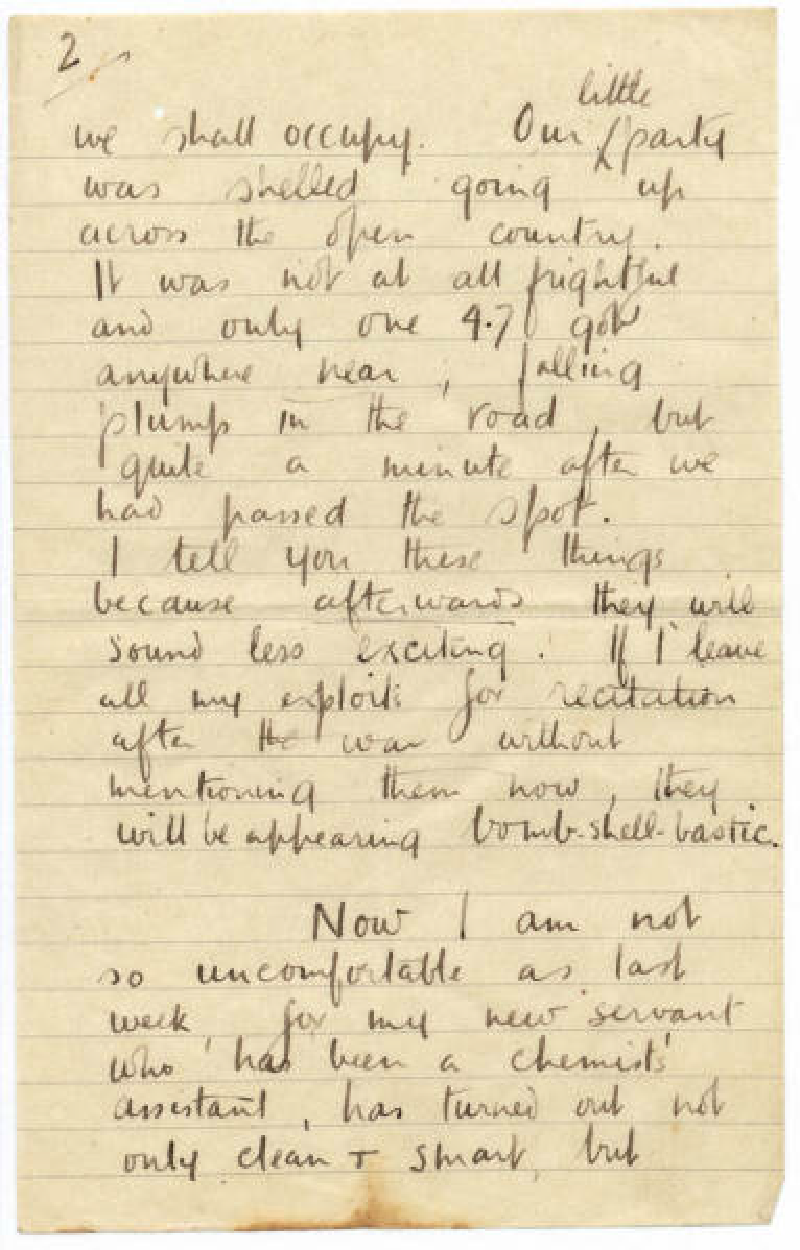 2
little
we shall occupy. Our party
was shelled going up
across the open country.
It was not at all frightful
and only one 4.7 got
anywhere near, falling
plump in the road, but
quite a minute after we
had passed the spot.
I tell you these things
because afterwards they will
sound less exciting. If I leave
all my exploits for recitation
after the war without
mentioning them now, they
will be appearing bomb-shell-bastic.
Now I am not
so uncomfortable as last
week, for my new servant
who has been a chemist's
assistant, has turned out not
only clean + smart, but